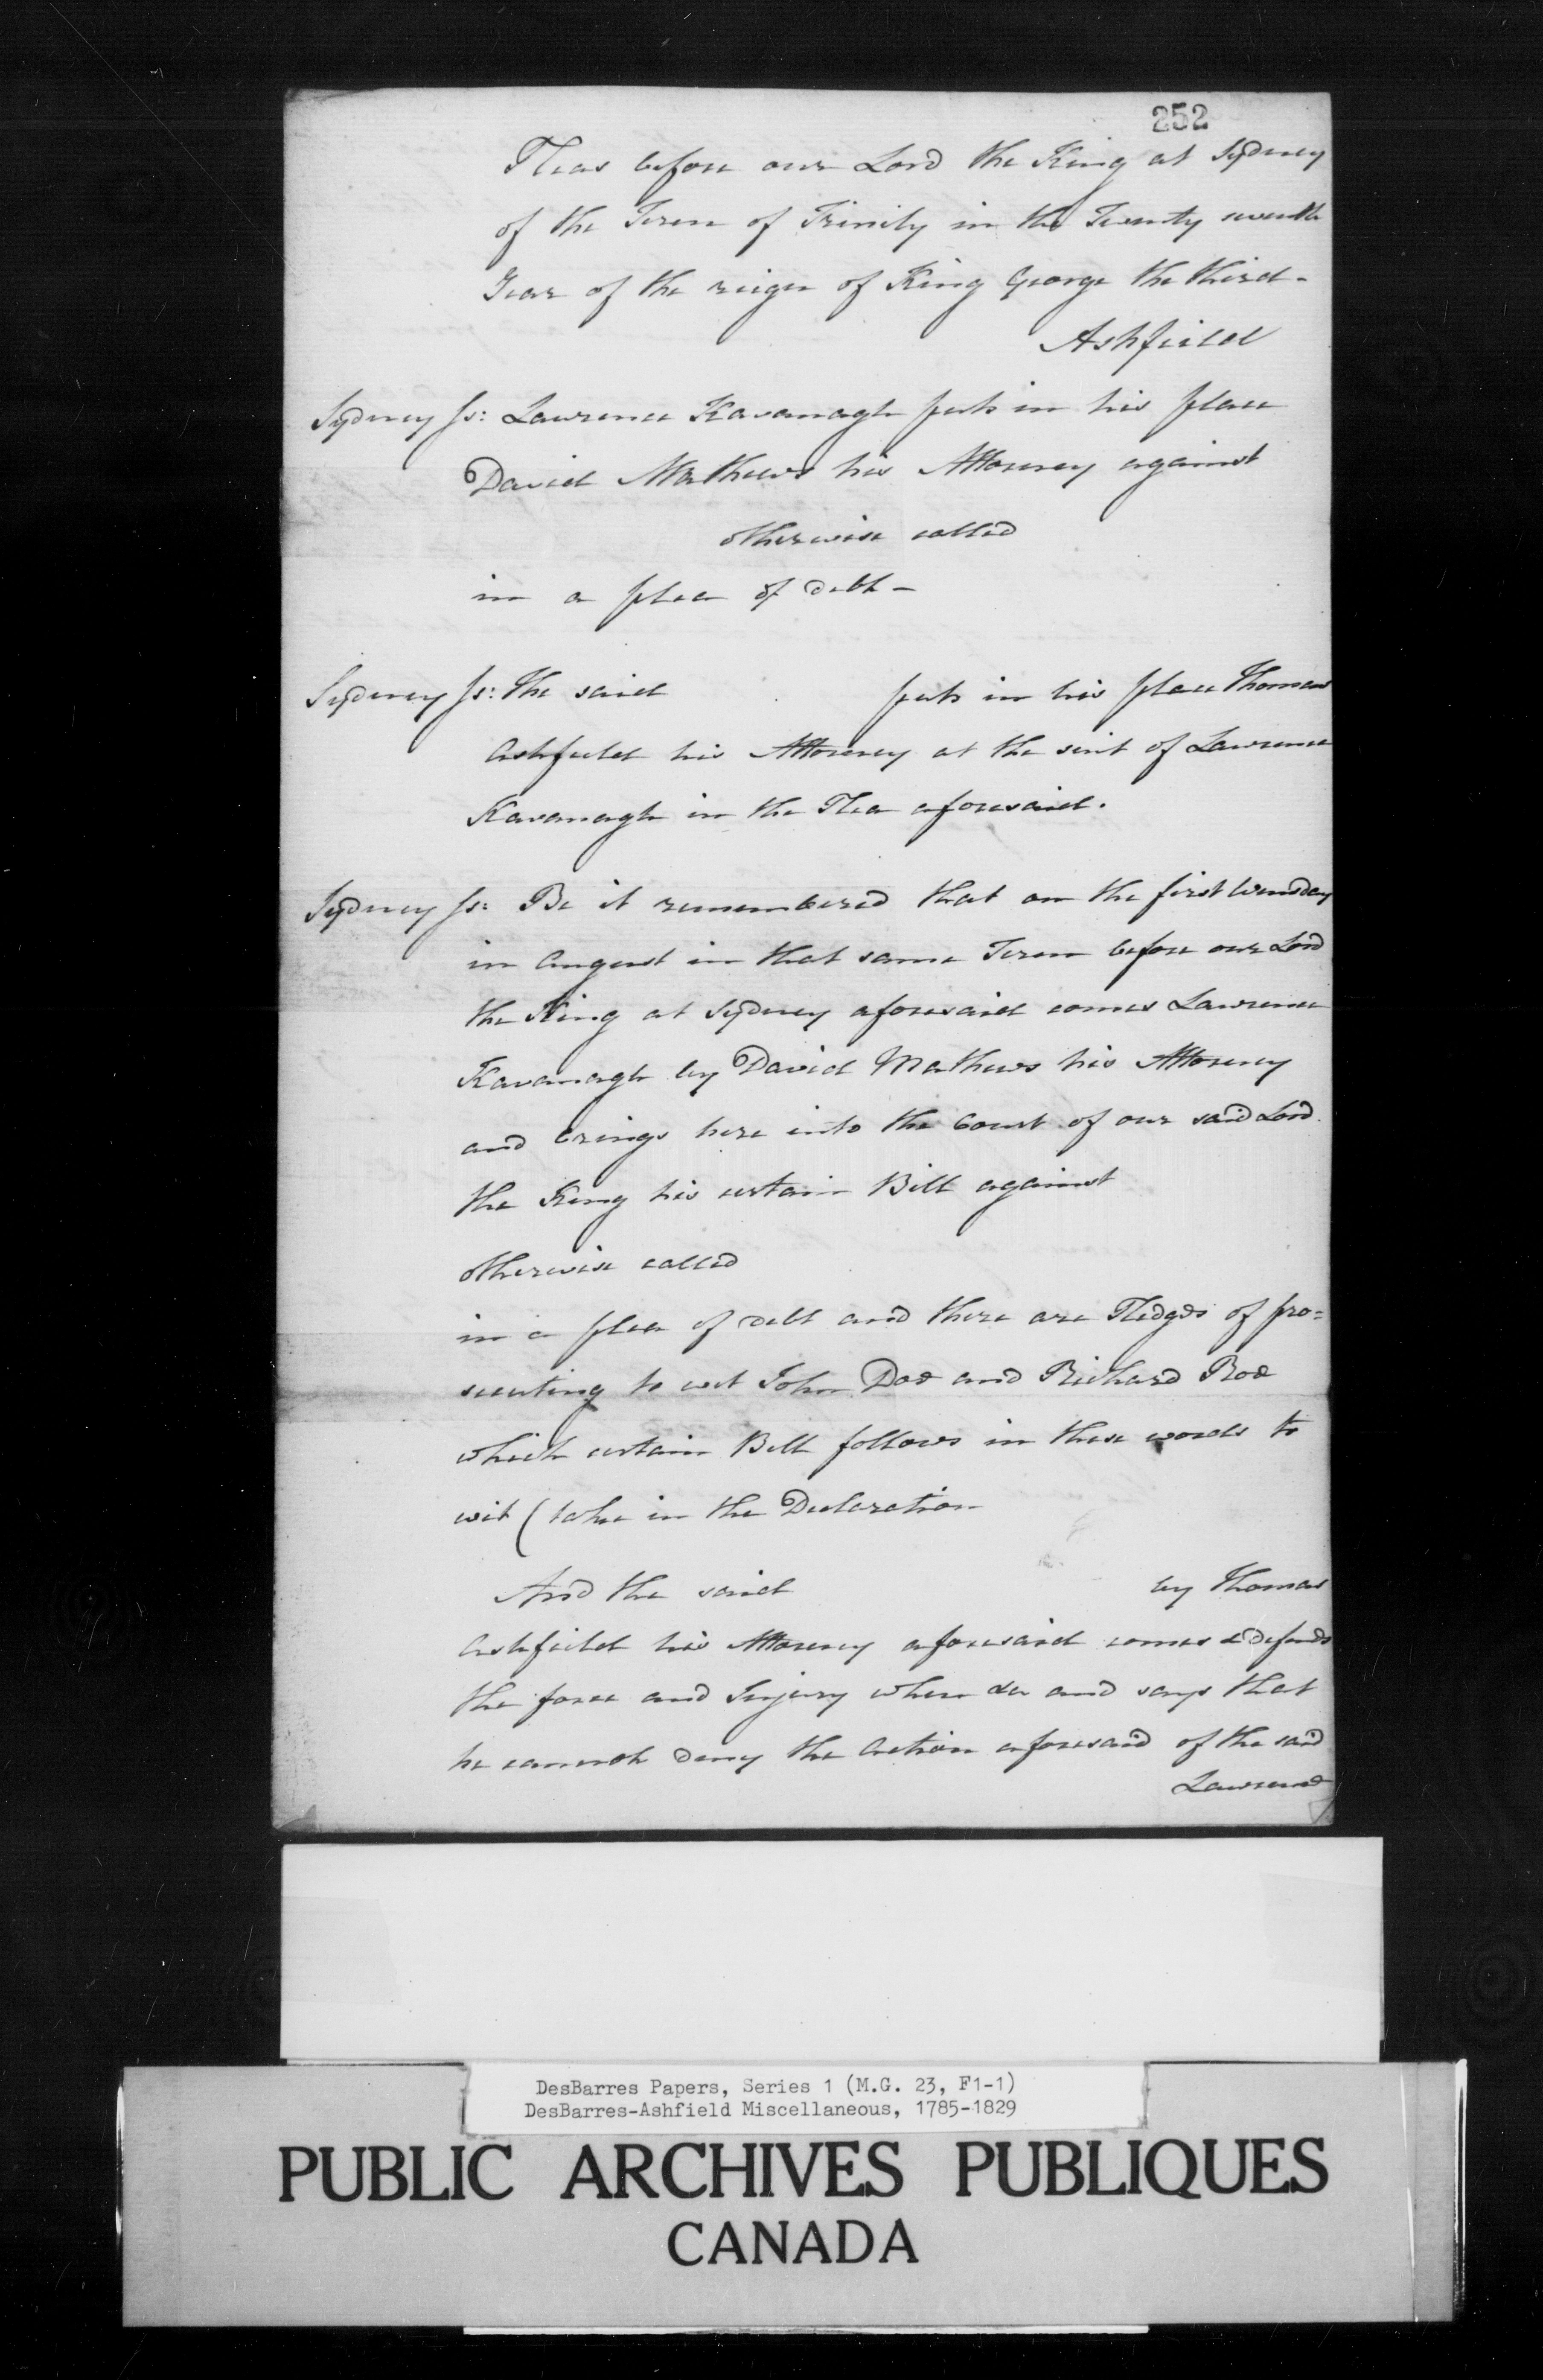 252
Pleas before our Lord the King at Sydney
of the Term of Trinity in the Twenty seventh
Year of the reign of King George the third -
Ashfield
Sydney ss: Lawrence Kavanagh puts in his place
David Mathews his Attorney against
otherwise called
in a plea of Debt -
Sydney ss: The said puts in his place Thomas
Ashfield his Attorney at the suit of Lawrence
Kavanagh in the Plea aforesaid.
Sydney ss: Be it remembered that on the first Wensday
in August in that same Term before our Lord
the King at Sydney aforesaid comes Lawrence
Kavanagh by David Mathews his Attorney
and brings here into the Court of our said Lord
the King his certain Bill against
otherwise called
in a plea of Debt and there are Pledges of pro=
secuting to wit John Doe and Richard Roe
which certain Bill follows in these words to
wit (take in the Declaration
And the said by Thomas
Ashfield his Attorney aforesaid comes & Defends
the force and Injury when &c and says that
he cannot Deny the Action aforesaid of the said
Lawrence
DesBarres Papers, Series 1 (M.G. 23, F1-1)
DesBarres-Ashfield Miscellaneous, 1785-1829
PUBLIC ARCHIVES PUBLIQUES
CANADA